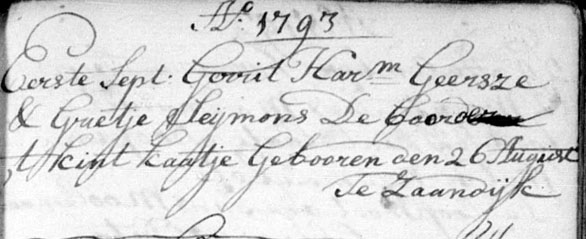 Aº 1793
Eerste Sept: Gerrit Harm Geersze
& Grietje Sleijmons De boorder
't kint kaatje Gebooren den 26 August
Te Zaandijk